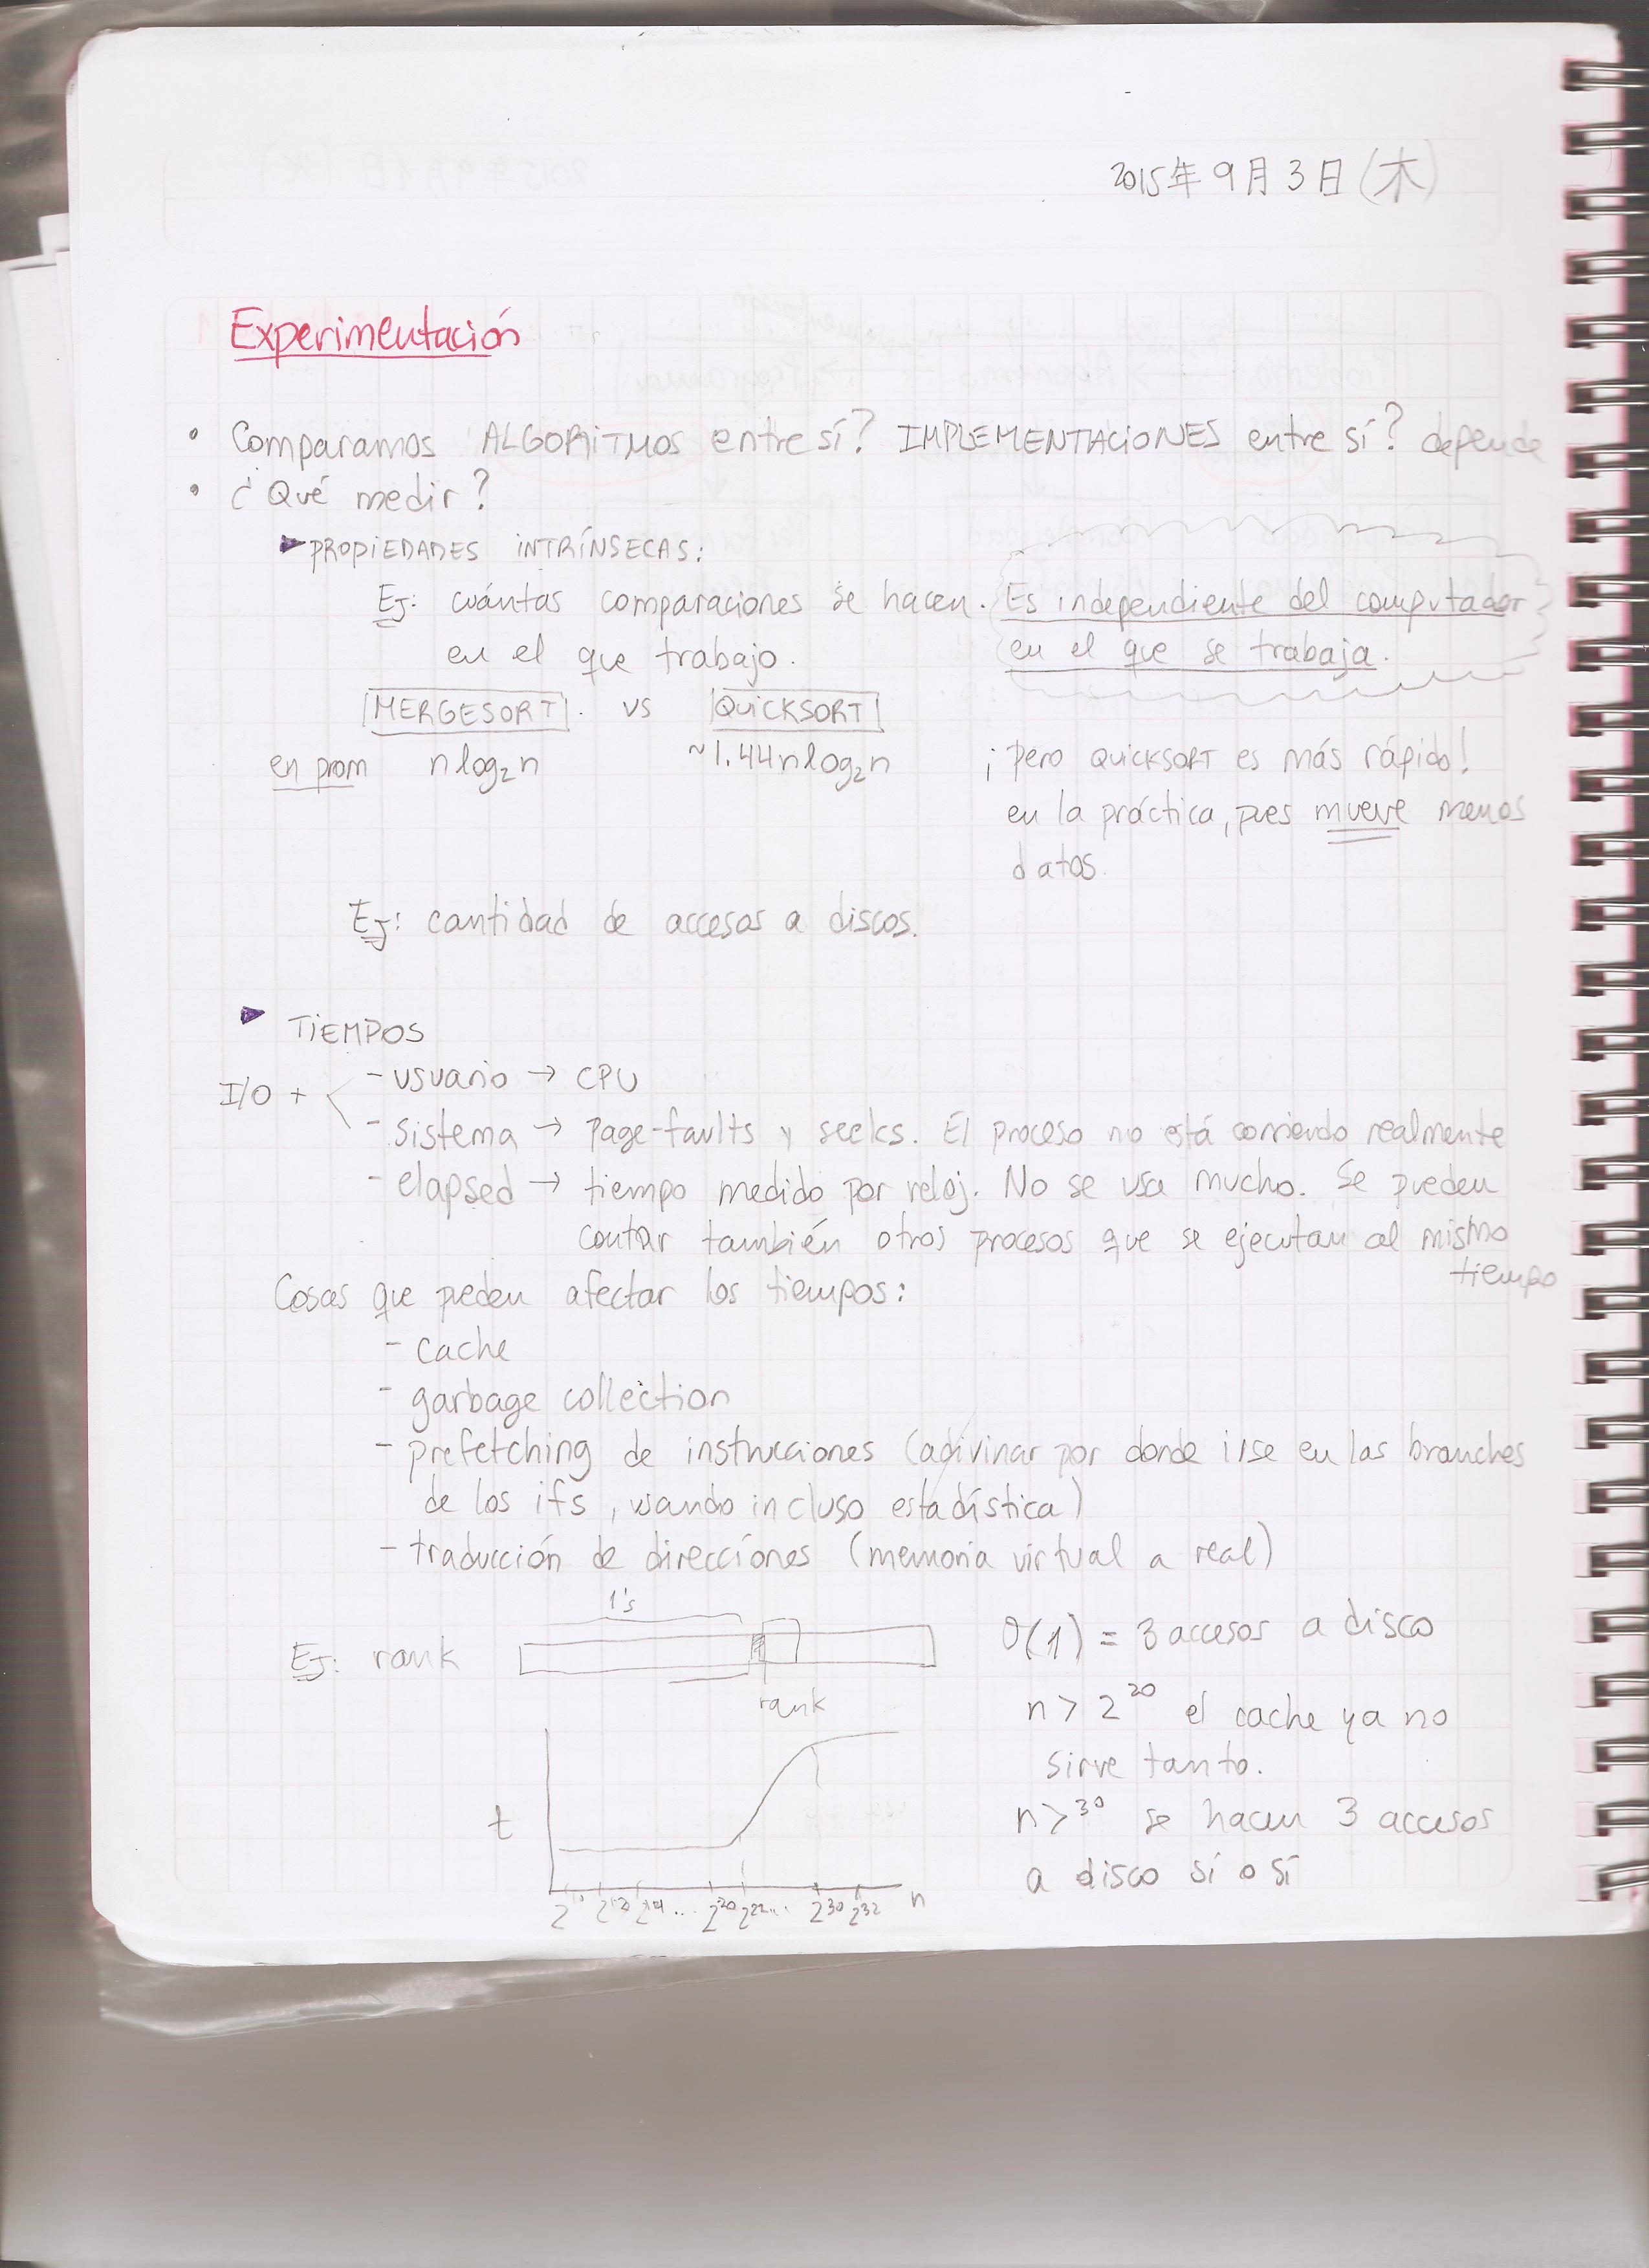 2015年9月3日(木)
Experimentación
• Comparamos ALGORITMOS entre sí? IMPLEMENTACIONES entre sí? depende
• ¿Qué medir?
▶ PROPIEDADES INTRÍNSECAS:
Ej: cuántas comparaciones se hacen. Es independiente del computador
en el que trabajo. en el que se trabaja.
MERGESORT vs QUICKSORT
en prom n log₂ n ~1.44 n log₂ n ¡Pero QUICKSORT es más rápido!
en la práctica, pues mueve menos
datos.
Ej: cantidad de accesos a discos.
▶ TIEMPOS
I/O + < - usuario → CPU
- sistema → page-faults y seeks. El proceso no está corriendo realmente
- elapsed → tiempo medido por reloj. No se usa mucho. Se pueden
contar también otros procesos que se ejecutan al mismo
tiempo
Cosas que pueden afectar los tiempos:
- cache
- garbage collection
- prefetching de instrucciones (adivinar por donde irse en las branches
de los ifs, usando incluso estadística)
- traducción de direcciones (memoria virtual a real)
1's
Ej: rank O(1) = 3 accesos a disco
rank
n > 2²⁰ el cache ya no
sirve tanto.
t n >³⁰ se hacen 3 accesos
a disco sí o sí
2²⁰ 2²² ... 2³⁰ 2³² n